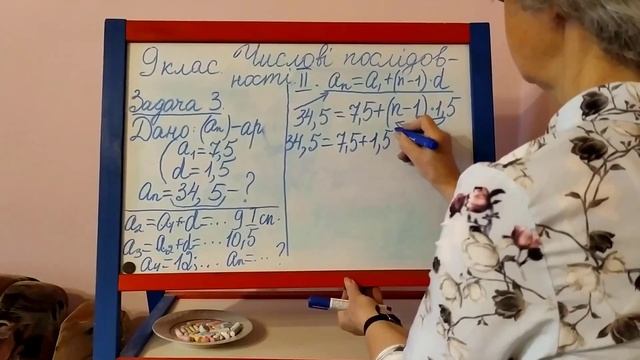 9 клас. Числові послідов-
ності. II. aₙ=a₁+(n-1)·d
Задача 3.
Дано: (aₙ)-ар.
a₁=7,5
d=1,5
aₙ=34,5,-?
a₂=a₁+d=... 9 I сп.
a₃=a₂+d=...10,5
a₄=12;... aₙ=...?
34,5=7,5+(n-1)·1,5
34,5=7,5+1,5